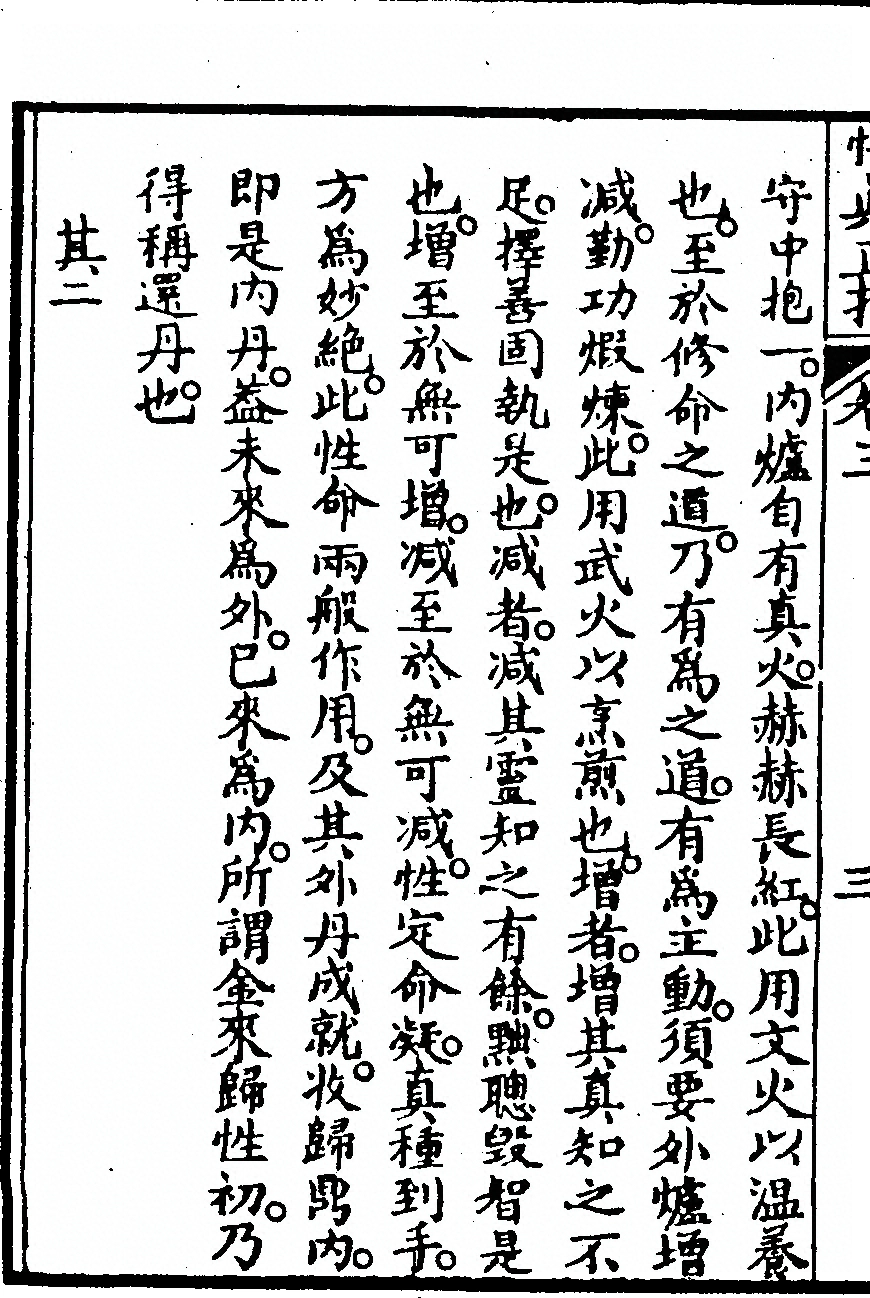 悟真直指 卷三 三
守中抱一。内爐自有真火。赫赫長紅。此用文火以温養
也。至於修命之道。乃有爲之道。有爲主動。須要外爐增
減。勤功煅煉。此用武火以烹煎也。增者。增其真知之不
足。擇善固執是也。减者。减其靈知之有餘。黜聰毁智是
也。增至於無可增。减至於無可减。性定命凝。真種到手。
方爲妙絶。此性命兩般作用。及其外丹成就。收歸鼎内。
即是内丹。蓋未來爲外。已來爲内。所謂金來歸性初。乃
得稱還丹也。
其二